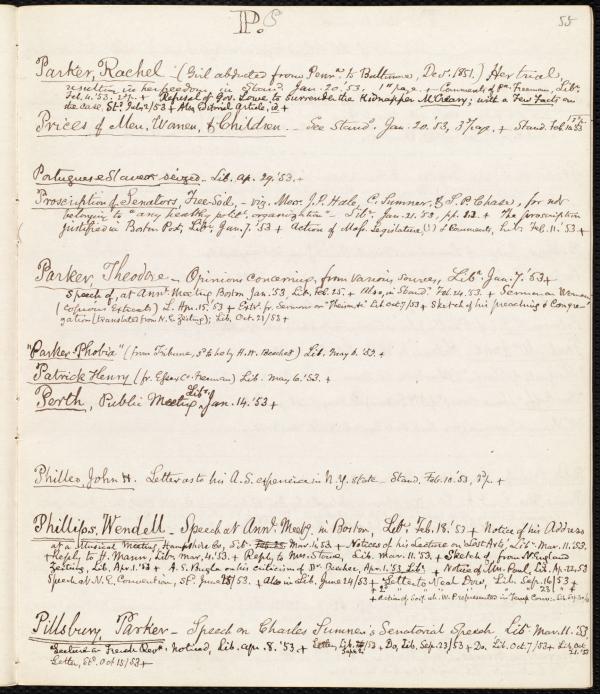 P. 55
Parker, Rachel - (Girl abducted from Penna. to Baltimore, Decr. 1851.) Her trial
resulting in her freedom - in Stand. Jan. 20 '53. 1st page. + Comments of Pa. Freeman, Libr.
Feb. 4. '53. 2d p. + Refusal of Gov. Lowe to Surrender the Kidnapper McCreary; with a Few Facts on
the case. Sd. Feby 2/53 + Also Editorial Article, id +
Prices of Men, Women, & Children. - See Stand. Jan. 20. '53, 3d page. + Stand. Feb. 10. 53 1st p. +
Portuguese Slavers seized - Lib. Ap. 29. '53. +
Proscription of Senators, Free-Soil, - viz. Messr. J. P. Hale, C. Sumner, & S. P. Chase, for not
belonging to "any healthy polit. organization" - Libr. Jan. 21. '53, pp. + The proscription
justified in Boston Post, Libr. Jan. 7. '53 + Action of Mass. Legislature, & Comments, Libr. Feb. 11. '53. +
Parker, Theodore - Opinions concerning, from various sources, Libr. Jan. 7. '53 +
Speech of, at Annl. Meeting Boston Jan. '53. Lib. Feb. 25. + Also, in Stand. Feb. 24. '53. + Sermon on Woman,
(copious Extracts) L. Apr. 15. '53 + Extr. fr. Sermons on "Theism &c" Lib Oct. 7/53 + Sketch of his preaching & Congre-
gation (translated from N. E. Zeitung); Lib. Oct. 21/53 +
"Parker-Phobia" (from Tribune, sd. to be by H. W. Beecher) Lib. May 6. '53. +
Patrick Henry (fr. Essex Co. Freeman) Lib. May 6. '53. +
Perth, Public Meeting, Libr. Jan. 14. '53 +
Philleo, John H. Letter as to his A. S. experience in N. Y. state - Stand. Feb. 10. '53, 2d p. +
Phillips, Wendell - Speech at Annl. Meetg. in Boston, Libr. Feb. 18. '53 + Notice of his Address
at a Musical Meeting, Hampshire Co, Libr. Mar. 4. '53. + Notices of his Lecture on Lost Arts, Libr. Mar. 11. '53.
+ Reply to H. Mann, Libr. Mar. 4. '53. + Reply to Mrs. Stowe, Lib. Mar. 11. '53. + Sketch of, from N. England
Zeitung, Lib. Apr. 1. '53 + A. S. Bugle on his criticism of Dr. Beecher, Apr. 1. '53. Libr. + Notice of, Lib. Ap. 22, 53
Speech at N. E. Convention, Sd. June /53 + Also in Lib. June 24/53 + Letter to Neal Dow, Lib. Sep. 16/53 +
+ 2d " " " 23 " +
Pillsbury, Parker - Speech on Charles Sumner's Senatorial Speech Libr. Mar. 11. '53.
Lecture on French Revn. noticed, Lib. Apr. 8. '53 + Letter, Lib. Sept. + Do, Lib. Sep. 23/53 + Do. Lib. Oct. 7/53 + Lib. Oct. 21. '53
Letter, Sd. Oct 15/53 +